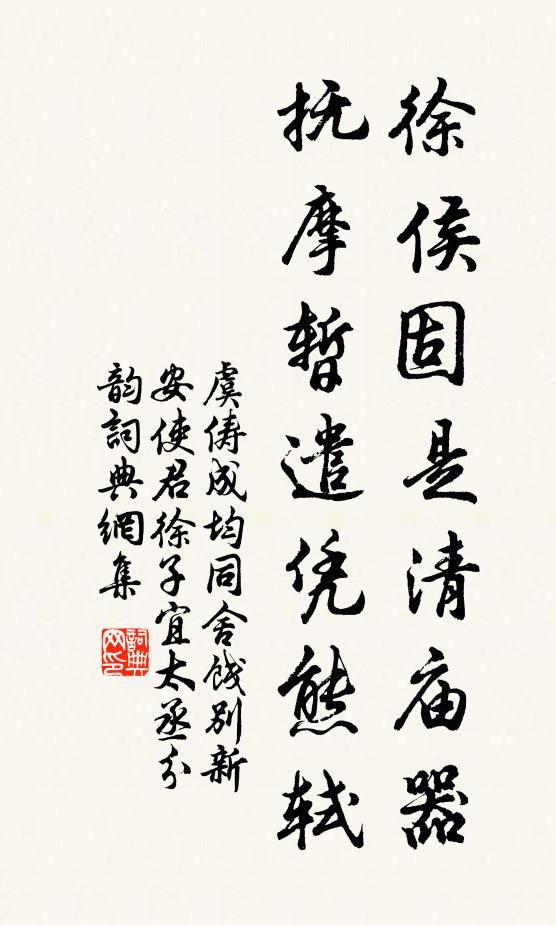 徐侯固是清庙器
抚摩暂遣凭熊轼
虞俦成均同舍饯别新
安使君徐子宜太丞分
韵词典网集
词典
网印